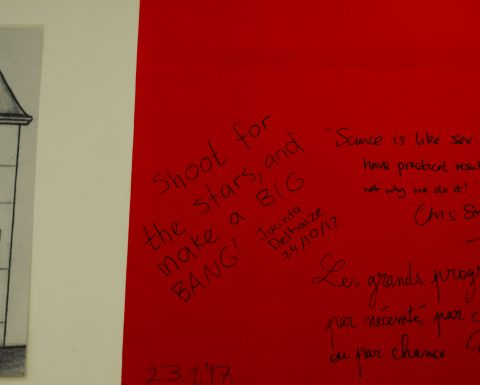 Shoot for
the stars, and
make a BIG
BANG!
Jacinta
Delhaize
24/10/17
"Science is like sex
have practical
not why we do it!
Chris
Les grands
par nécessité, par
ou par chance
23.1.'17